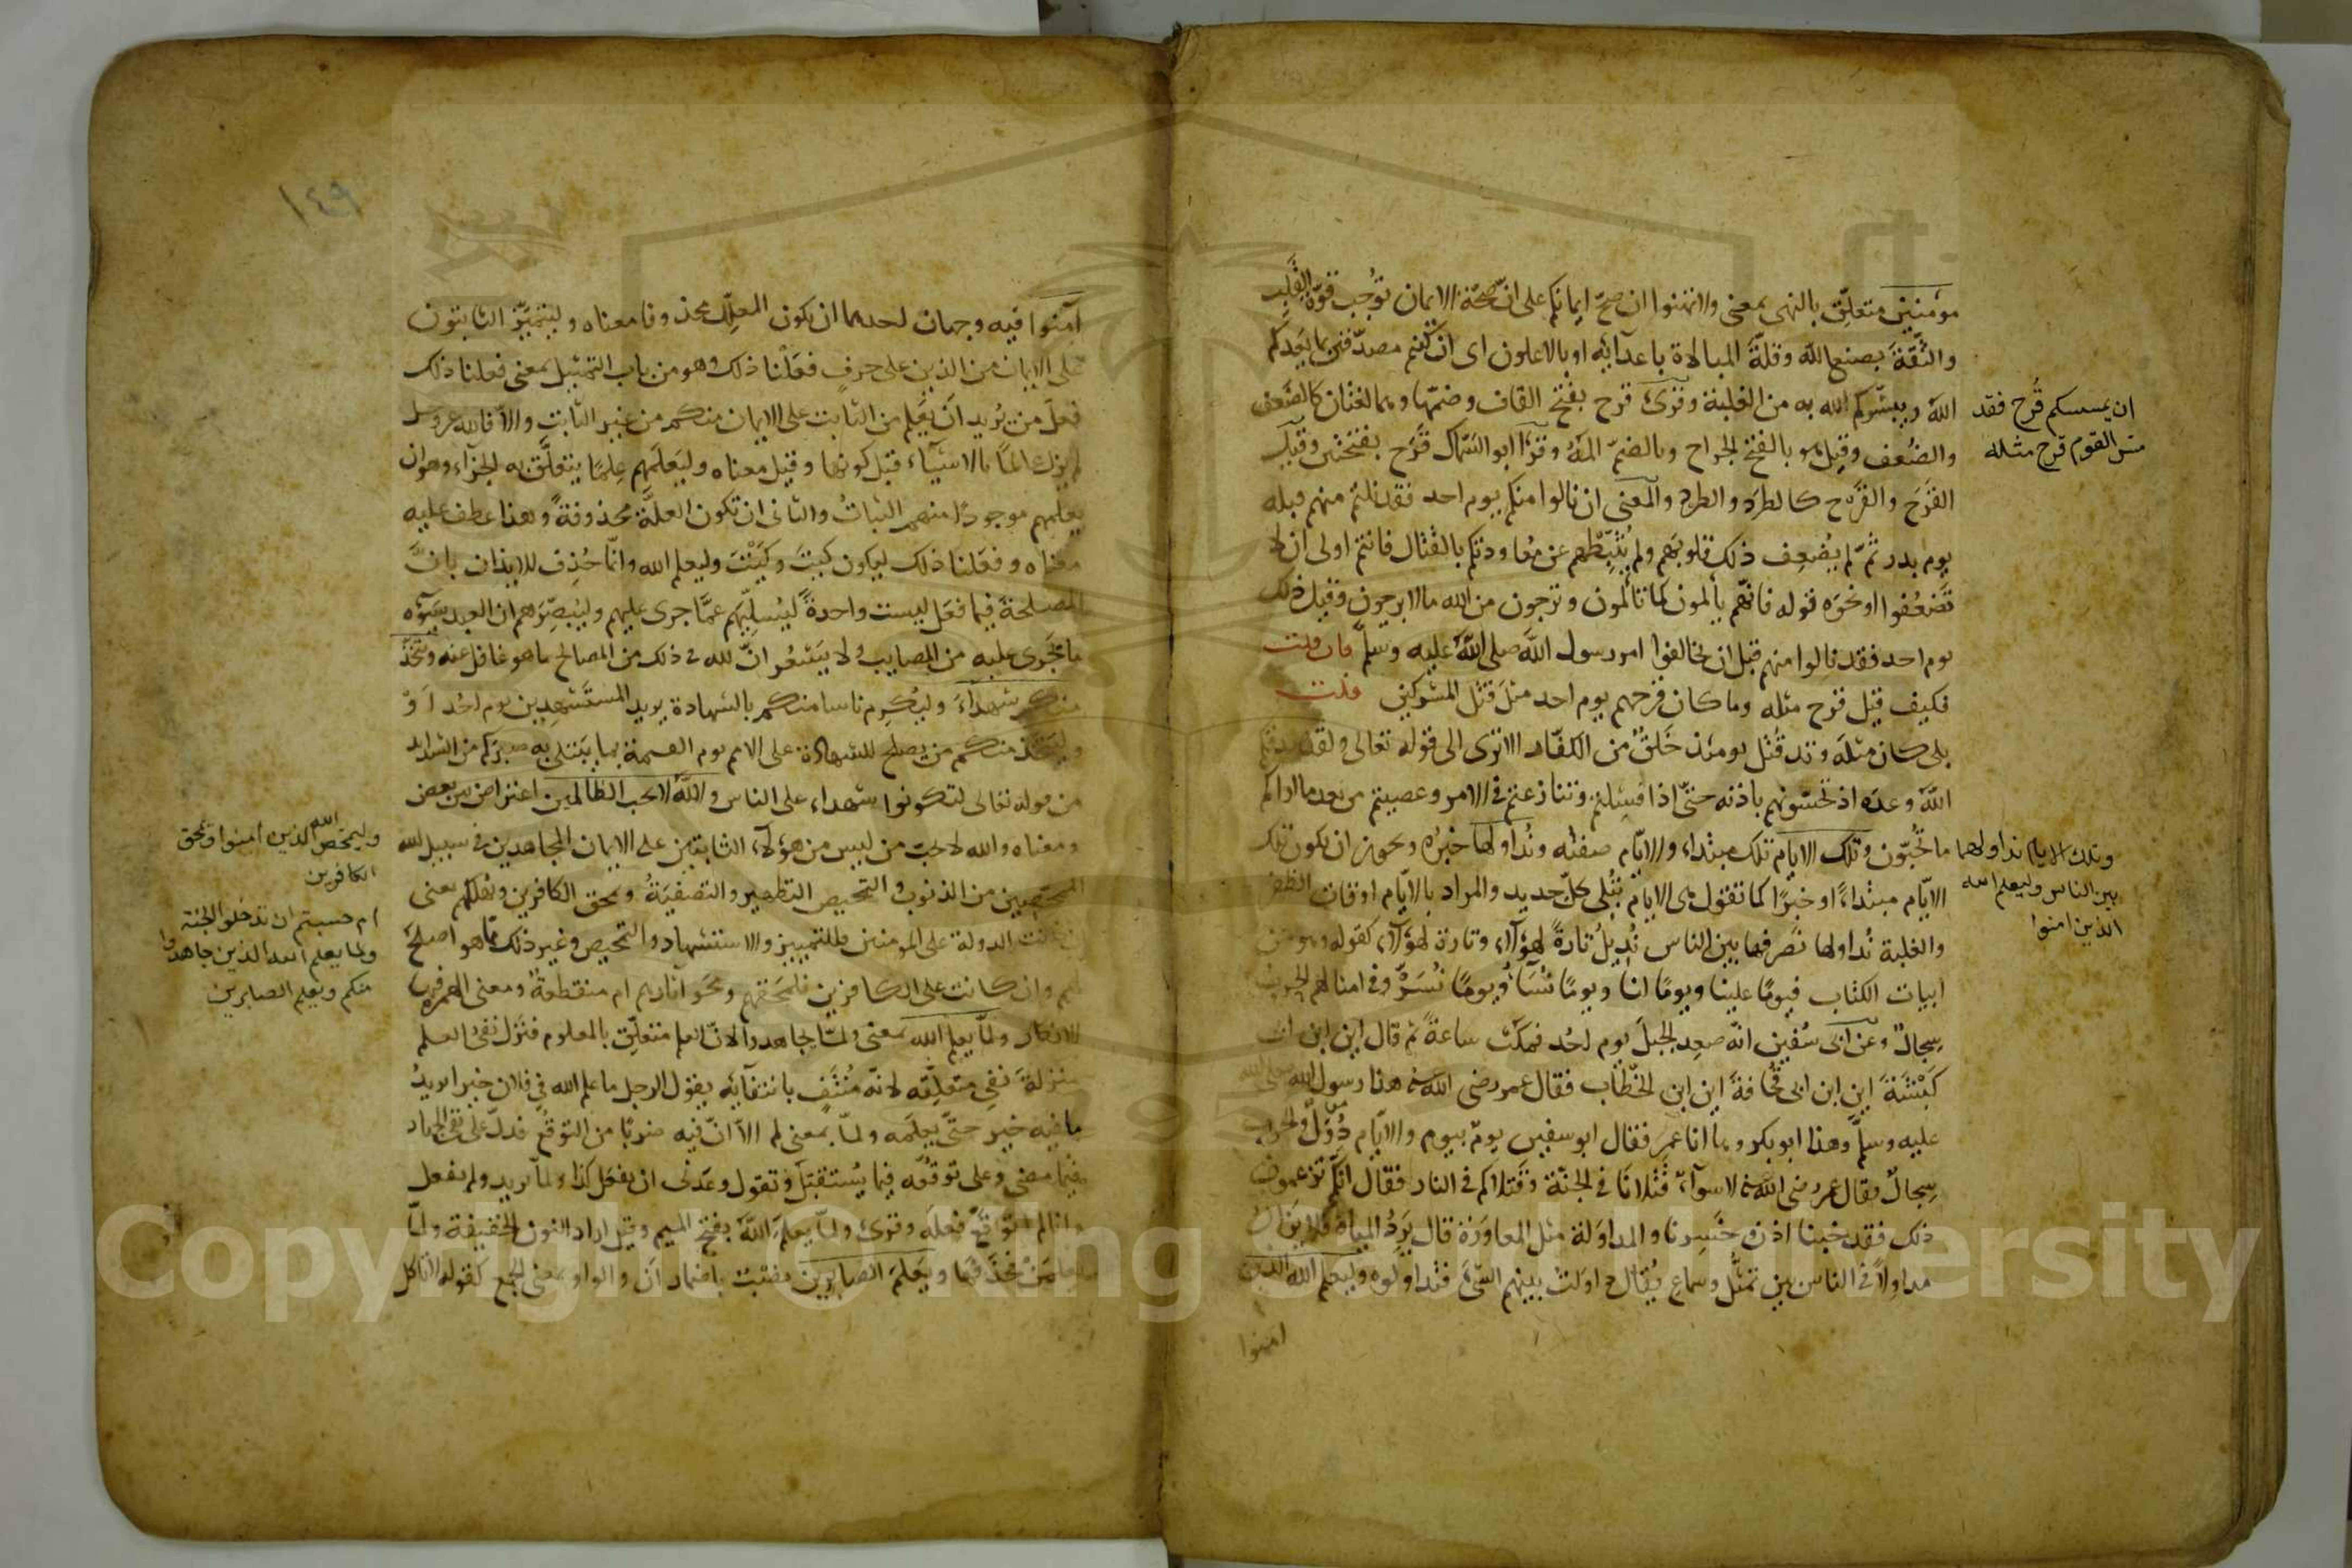 مؤمنين متعلّق بالنهى بمعنى ولا تهنوا ان صحّ ايمانكم على انّ صحّة الايمان توجب قوّة القلب
والثّقة بصنع الله وقلّة المبالاة باعدائه او بالاعلون اى ان كنتم مصدّقين بما يعدكم
الله ويبشّركم الله به من الغلبة وقرئ قرح بفتح القاف وضمّها وهما لغتان كالضَعف
والضُعف وقيل هو بالفتح الجراح وبالضمّ المها وقرأ ابو السّمّال قَرَح بفتحتين وقيل
القَرْح والقَرَح كالطرد والطرد والمعنى ان نالوا منكم يوم احد فقد نلتم منهم قبله
يوم بدر ثمّ لم يُضعِف ذلك قلوبهم ولم يُثبّطهم عن معاودتكم بالقتال فانتم اولى ان لا
تَضعُفوا ونحوه قوله فانهم يألمون كما تألمون وترجون من الله ما لا يرجون وقيل ذلك
يوم احد فقد نالوا منهم قبل ان يخالفوا امر رسول الله صلى الله عليه وسلّم فان قلت
فكيف قيل قرح مثله وما كان قرحهم يوم احد مثل قتل المشركين قلت
بلى كان مثله وقد قُتل يومئذ خَلقٌ من الكفّار الا ترى الى قوله تعالى ولقد صدقكم
الله وعده اذ تحسّونهم باذنه حتّى اذا فشلتم وتنازعتم فى الامر وعصيتم من بعد ما اراكم
ما تحبّون وتلك الايام تلك مبتداء والايّام صفته ونُداولها خبرُه ويجوز ان يكون تلك
الايّام مبتداءً او خبرًا كما تقول هى الايام تُبلى كلّ جديد والمراد بالايّام اوقات الظفر
والغلبة نُداولها نصرفها بين الناس نُديلُ تارةً لهؤلاء وتارة لهؤلاء كقوله وهو من
ابيات الكتاب فيومًا علينا ويومًا لنا ويومًا نُسَاءُ ويومًا نُسَرّ وفى امثالهم الحرب
سجالٌ وعن ابى سُفين انّه صعد الجبل يوم احُد فمكث ساعةً ثم قال اين ابن ابى
كَبْشَةَ اين ابن ابى قُحافة اين ابن الخطّاب فقال عمر رضى الله عنه هذا رسول الله صلى الله
عليه وسلّم وهذا ابو بكر وها انا عمر فقال ابو سفين يومٌ بيوم والايّام دُوَلٌ والحرب
سِجالٌ فقال عمر رضى الله عنه لا سوآء، قَتْلانا فى الجنّة وقَتلاكم فى النار فقال انّكم تزعمون
ذلك فقد خبنا اذن وخَسِرنا والمداوَلة مثل المعاوَرة قال يَرِدُ المياهَ فلا يزال
مداوِلاً فى الناس بين تمثّل وسماع يُقال داوَلتُ بينهم الشّئ فتداولوه وليعلم الله الذين
امنوا
ان يمسسكم قُرح فقد
مسّ القوم قرح مثله
وتلك الايام نداولها
بين الناس وليعلم الله
الذين امنوا
١٤٩
آمنوا فيه وجهان احدهما ان يكون المعلّل محذوفا معناه وليتميّز الثابتون
على الايمان من الذين على حرفٍ فعَلْنا ذلك وهو من باب التمثيل بمعنى فعلنا ذلك
فعلَ من يُريد ان يَعلم من الثابت على الايمان منكم من غير الثابت والاّ فالله عز وجل
لم يزل عالمًا بالاشيآء قبل كونها وقيل معناه وليَعلَمهم عِلمًا يتعلّق به الجزاء وهو ان
يعلمهم موجودًا منهم الثباتُ والثانى ان تكون العلّة محذوفةً وهذا عطف عليه
معناه وفعَلنا ذلك ليكون كيتَ وكَيْتَ وليعلم الله وانّما حُذِف للايذان بانّ
المصلحة فيما فعَل ليست واحدةً ليُسلّيَهم عمّا جرى عليهم وليُبصِّرَهم ان العبد يسوؤه
ما يَجرى عليه من المصايب ولا يَشعُر انّ لله فى ذلك من المصالح ما هو غافل عنه ويتّخذ
منكم شهدآءَ وليُكرِم ناسا منكم بالشهادة يريد المستشهدين يوم احُد اَوْ
وليَتّخذ منكم من يصلح للشهادة على الامم يوم القيمة بما يَبتلى به صبركم من الشدايد
من قوله تعالى لتكونوا شهداء على الناس والله لا يحب الظالمين اعتراض بين بعض
ومعناه والله لا يحبّ من ليس من هؤلاء الثابتين على الايمان المجاهدين فى سبيل الله
الممحّصين من الذنوب والتمحيص التطهير والتصفيَةُ ويمحق الكافرين ويُهلكهم يعنى
ان كانت الدولة على المؤمنين فللتمييز والاستشهاد والتمحيص وغير ذلك ممّا هو اصلح
لهم وان كانت على الكافرين فلِمَحقِهم ومحو آثارهم ام منقطعةٌ ومعنى الهمزة فيها
الانكار ولمّا يعلم الله بمعنى ولمّا يجاهدوا لانّ العلم متعلّق بالمعلوم فنزل نفى العلم
منزلةَ نفى متعلّقه لانّه مُنتَفٍ بانتفآئه يقول الرجل ما علم الله فى فلان خيرا يريدُ
ما فيه خير حتّى يعلمه ولمّا بمعنى لم الاّ انّ فيه ضربًا من التوقّع فدلّ على نفى الجهاد
فيما مضى وعلى توقّعه فيما يُستقبل وتقول وعَدنى ان يفعَل كذا ولمّا تريد ولم يفعل
وانا اتوقّع فعله وقرئ ولمّا يعلمَ الله بفتح الميم وقيل اراد النون الخفيفة ولمّا
يعلمَنْ فحذَفها ويَعلمَ الصابرين نصبٌ باضمار اَن والواو بمعنى الجمع كقوله لا تاكل
وليمحّص الله الذين امنوا ويمحق
الكافرين
ام حسبتم ان تدخلوا الجنة
ولما يعلم الله الذين جاهدوا
منكم ويعلم الصابرين
Copyright © King Saud University